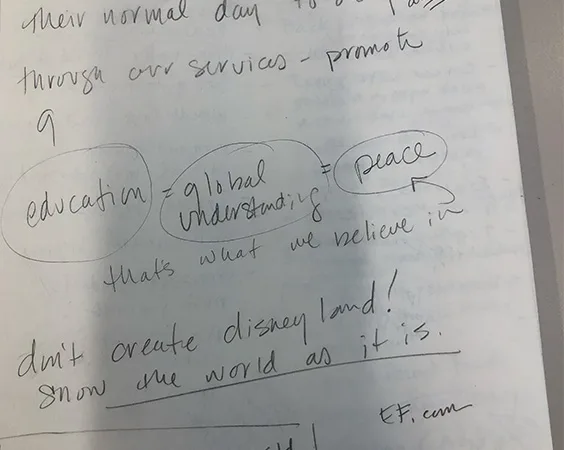 their normal day to
through our services - promote
9
education = global understanding = peace
that's what we believe in
don't create disneyland!
show the world as it is.
EF.com